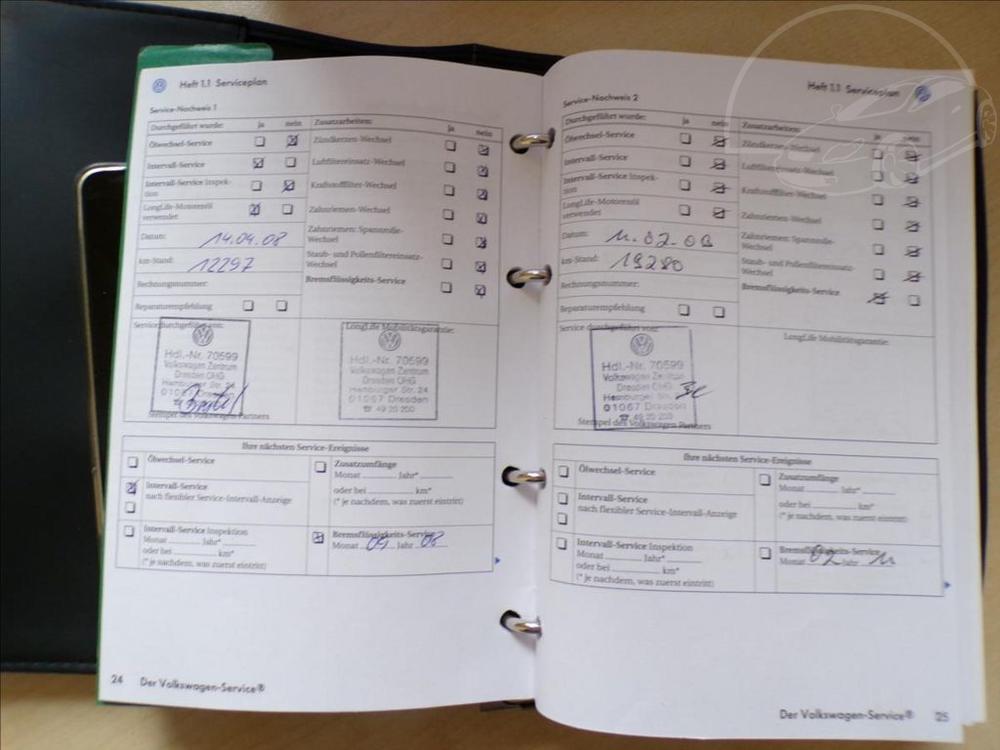 Heft 1.1 Serviceplan
Service-Nachweis 1
Durchgeführt wurde: ja nein
Zusatzarbeiten: ja nein
Ölwechsel-Service
Zündkerzen-Wechsel
Intervall-Service
Luftfiltereinsatz-Wechsel
Intervall-Service Inspek-
tion
Kraftstofffilter-Wechsel
LongLife-Motorenöl
verwendet
Zahnriemen-Wechsel
Datum: 14.04.08
Zahnriemen: Spannrolle-
Wechsel
km-Stand: 12297
Staub- und Pollenfiltereinsatz-
Wechsel
Rechnungsnummer:
Bremsflüssigkeits-Service
Reparaturempfehlung
Service durchgeführt von:
LongLife Mobilitätsgarantie:
Hdl.-Nr. 70599
Volkswagen Zentrum
Dresden OHG
Hamburger Str. 24
01067 Dresden
☎ 49 20 200
Stempel des Volkswagen Partners
Hdl.-Nr. 70599
Volkswagen Zentrum
Dresden OHG
Hamburger Str. 24
01067 Dresden
☎ 49 20 200
Ihre nächsten Service-Ereignisse
Ölwechsel-Service
Zusatzumfänge
Monat Jahr*
Intervall-Service
nach flexibler Service-Intervall-Anzeige
oder bei km*
(* je nachdem, was zuerst eintritt)
Intervall-Service Inspektion
Monat Jahr*
oder bei km*
(* je nachdem, was zuerst eintritt)
Bremsflüssigkeits-Service
Monat 09 Jahr 08
24 Der Volkswagen-Service®
Heft 1.1 Serviceplan
Service-Nachweis 2
Durchgeführt wurde: ja nein
Zusatzarbeiten: ja nein
Ölwechsel-Service
Zündkerzen-Wechsel
Intervall-Service
Luftfiltereinsatz-Wechsel
Intervall-Service Inspek-
tion
Kraftstofffilter-Wechsel
LongLife-Motorenöl
verwendet
Zahnriemen-Wechsel
Datum: 11.02.09
Zahnriemen: Spannrolle-
Wechsel
km-Stand: 19280
Staub- und Pollenfiltereinsatz-
Wechsel
Rechnungsnummer:
Bremsflüssigkeits-Service
Reparaturempfehlung
Service durchgeführt von:
LongLife Mobilitätsgarantie:
Hdl.-Nr. 70599
Volkswagen Zentrum
Dresden OHG
Hamburger Str.
01067 Dresden
☎ 49 20 200
Stempel des Volkswagen Partners
Ihre nächsten Service-Ereignisse
Ölwechsel-Service
Zusatzumfänge
Monat Jahr*
Intervall-Service
nach flexibler Service-Intervall-Anzeige
oder bei km*
(* je nachdem, was zuerst eintritt)
Intervall-Service Inspektion
Monat Jahr*
oder bei km*
(* je nachdem, was zuerst eintritt)
Bremsflüssigkeits-Service
Monat 02 Jahr 11
Der Volkswagen-Service® 25